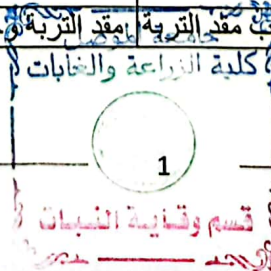 مقد التربة مقد التربة و
جامعة الموصل
كلية الزراعة والغابات
1
قسم وقاية النبات